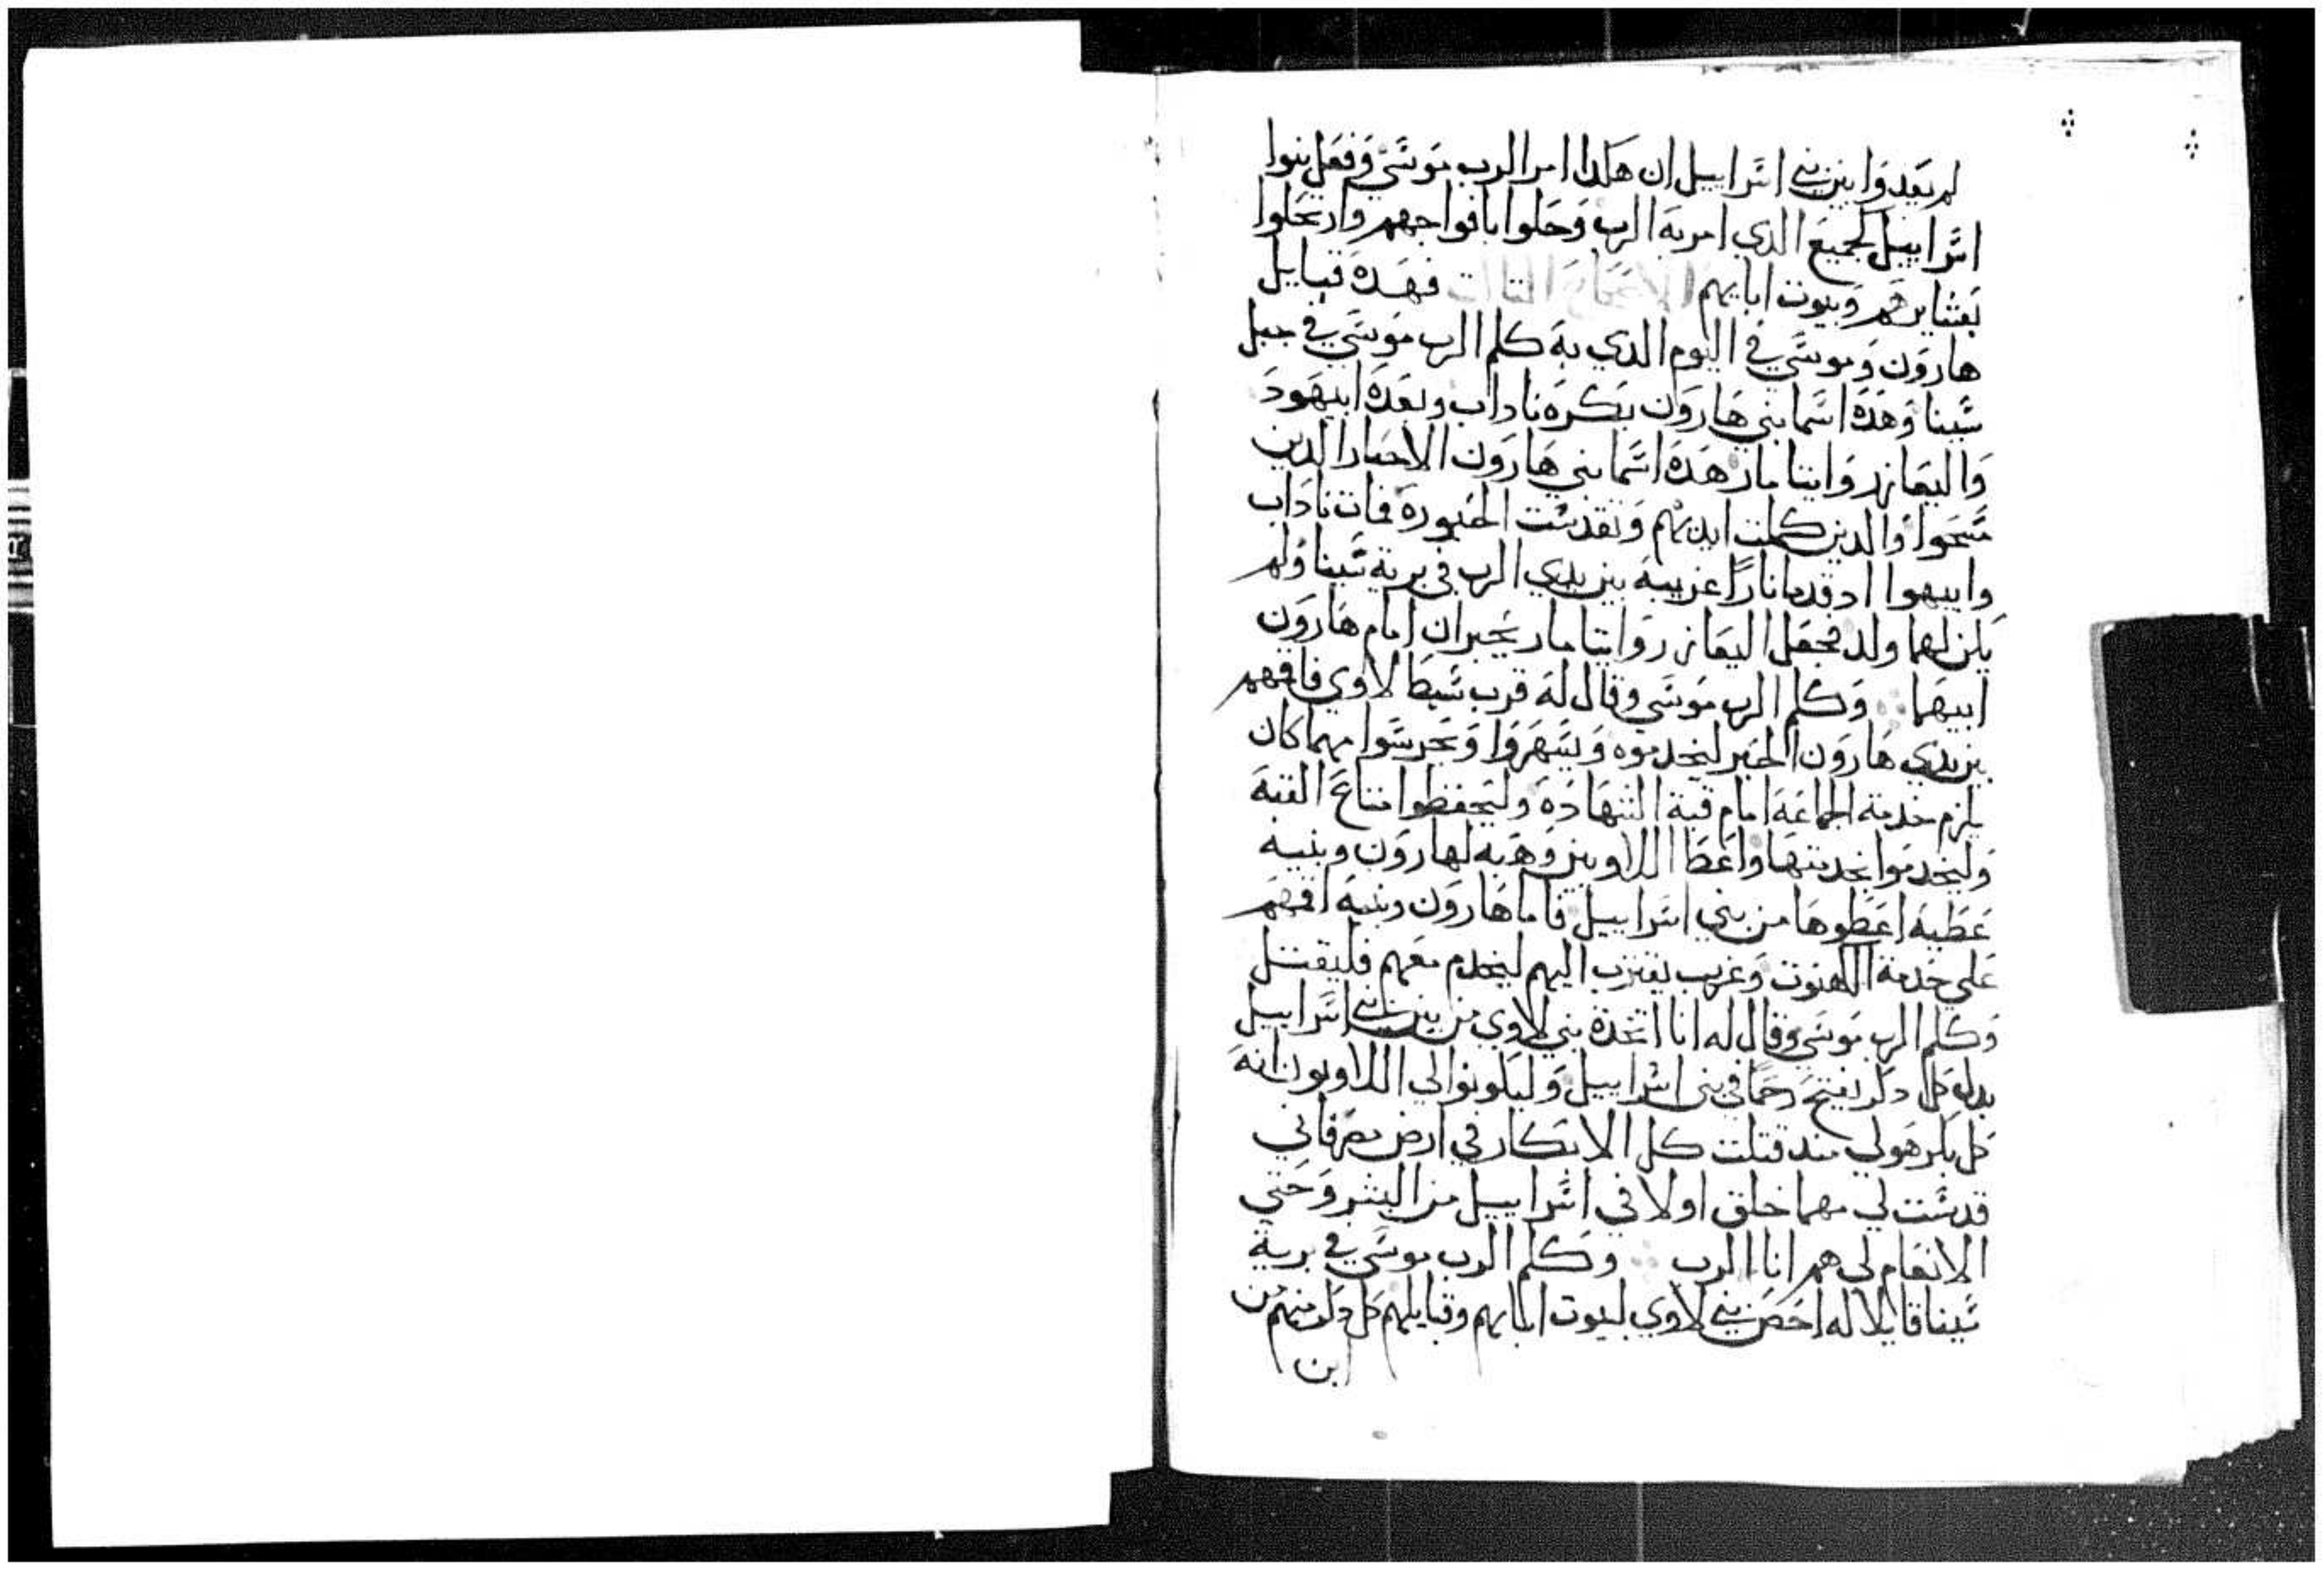 لم يعدوا بين بني اسراييل ان هكدا امر الرب موسي وفعل بنوا
اسراييل لجميع الدي امر به الرب وحلوا بافواجهم وارتحلوا
بعشايرهم وبيوت ابايهم الاصحاح التالت فهده قبايل
هارون وموسي في اليوم الدي به كلم الرب موسي في جبل
سينا وهده اسما بني هارون بكره ناداب وبعده ابيهود
واليعازر وايتامار هده اسما بني هارون الاحبار الدين
مسحوا والدين كملت ايديهم وتقدست الحبوره فمات ناداب
وابيهوا اد قدما نارا غريبه بين يدي الرب في برية سينا ولم
يكن لهما ولد فجعل اليعازر وايتامار يحبران امام هارون
ابيهما وكلم الرب موسي وقال له قرب سبط لاوي فاقمهم
بين يدي هارون الحبر ليخدموه ويسهروا ويحرسوا مهما كان
يلزم خدمة الجماعه امام قبة الشهاده وليحفظوا متاع القبه
وليخدموا بخدمتها واعطا اللاويين وهبه لهارون وبنيه
عطيه اعطوها من بني اسراييل فاما هارون وبنيه اقمهم
علي خدمة الكهنوت وغريب يقترب اليهم ليخدم معهم فليقتل
وكلم الرب موسي وقال له انا اتخدة بني لاوي من بين بني اسراييل
بدل كل دكر يفتح رحما في بني اسراييل وليكونوا لي اللاويون انه
كل بكر هو لي مند قتلت كل الابكار في ارض مصر فاني
قدست لي مهما خلق اولا في اسراييل من البشر وحتي
الانعام لي هم انا الرب وكلم الرب موسي في برية
سينا قايلا له احص بني لاوي لبيوت ابايهم وقبايلهم كل دكر منهم من
ابن